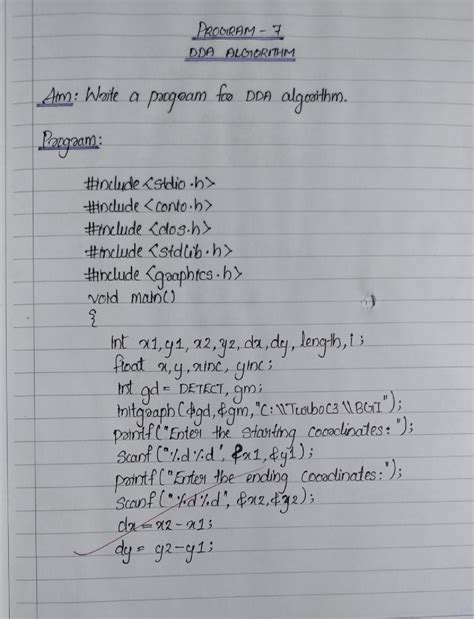 PROGRAM - 7
DDA ALGORITHM
Aim: Write a program for DDA algorithm.
Program:
#include <stdio.h>
#include <conio.h>
#include <dos.h>
#include <stdlib.h>
#include <graphics.h>
void main()
{
int x1, y1, x2, y2, dx, dy, length, i;
float x, y, xinc, yinc;
int gd = DETECT, gm;
initgraph (&gd, &gm, "C:\\TurboC3\\BGI");
printf ("Enter the starting coordinates: ");
scanf ("%d%d", &x1, &y1);
printf ("Enter the ending coordinates:");
scanf ("%d%d", &x2, &y2);
dx = x2 - x1;
dy = y2 - y1;